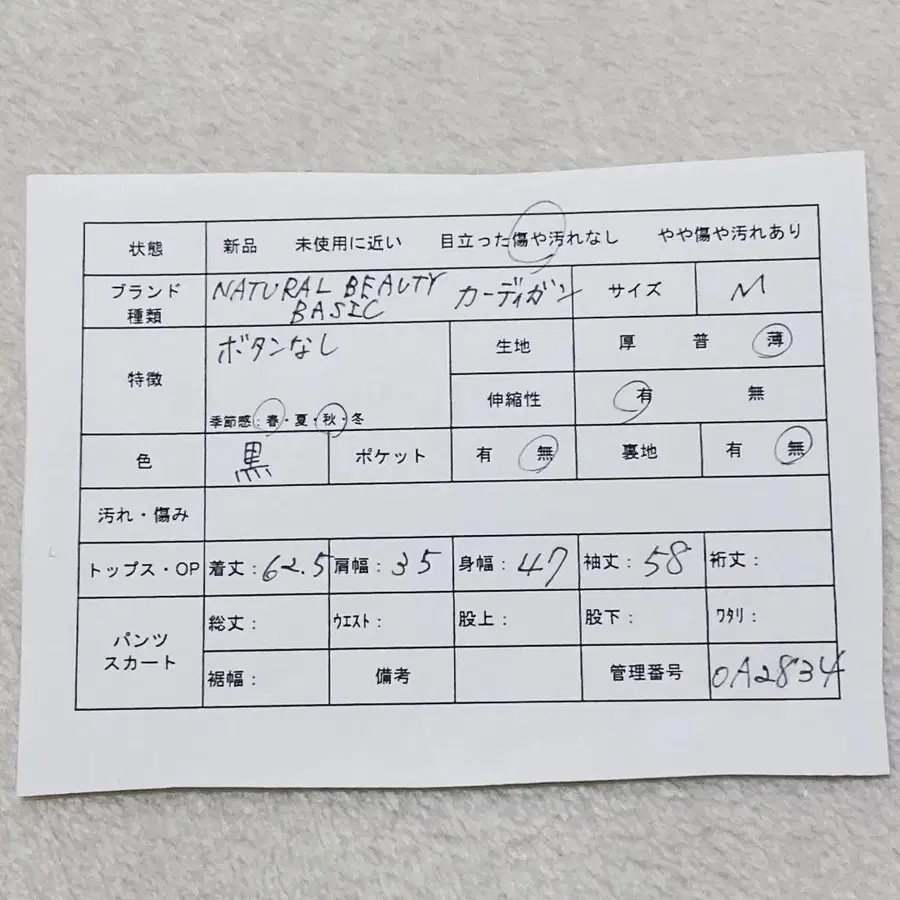 状態 新品 未使用に近い 目立った傷や汚れなし やや傷や汚れあり
ブランド 種類 NATURAL BEAUTY BASIC カーディガン サイズ M
特徴 ボタンなし 生地 厚 普 薄
季節感:春・夏・秋・冬 伸縮性 有 無
色 黒 ポケット 有 無 裏地 有 無
汚れ・傷み
トップス・OP 着丈:62.5 肩幅:35 身幅:47 袖丈:58 裄丈:
パンツ スカート 総丈: ウエスト: 股上: 股下: ワタリ:
裾幅: 備考 管理番号 0A2834